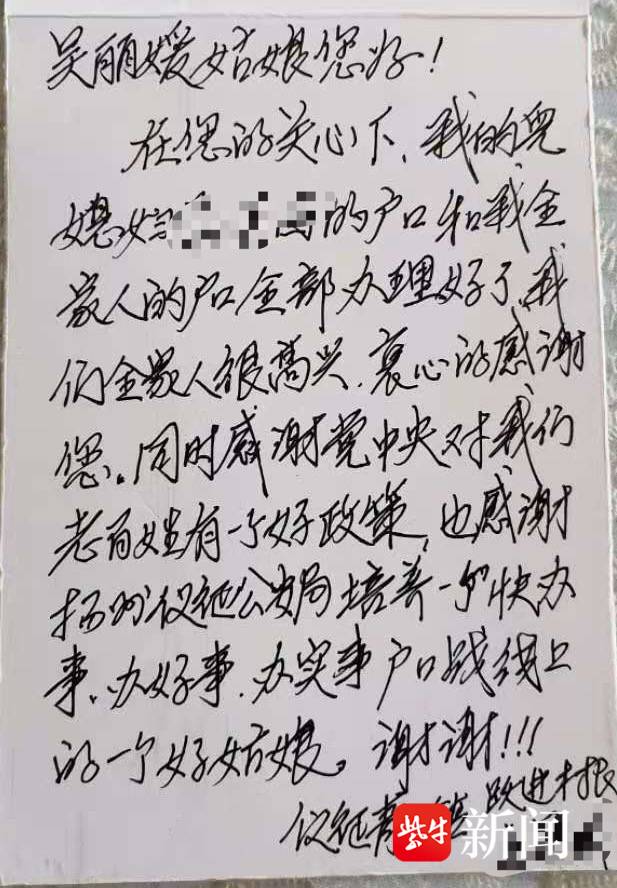 吴丽媛姑娘您好！
在您的关心下，我的儿
媳妇的户口和我全
家人的户口全部办理好了，我
们全家人很高兴，衷心的感谢
您。同时感谢党中央对我们
老百姓有一个好政策，也感谢
扬州仪征公安局培养一个快办
事、办好事、办实事户口战线上
的一个好姑娘。谢谢!!!
仪征 镇跃进村
紫牛新闻